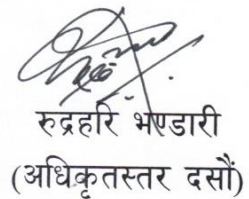 रुद्रहरि भण्डारी
(अधिकृतस्तर दसौं)